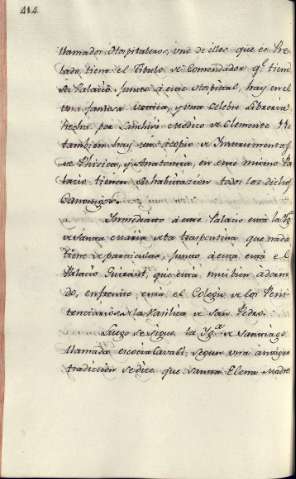 414
llamados Hospitaleros, uno de ellos que es Pre
lado, tiene el Titulo de Comendador q.e tiene
su Palacio junto á este Hospital, hay en el
una famosa Botica, y una celebre Libreria
hecha por Lancisio Medico de Clemente
tambien hay un acopio de Instrumentos
de Phisica, y Anatomia, en este mismo Pa
lacio tienen su habitacion todos los dichos
Canonigos.
Immediato á este Palacio está la Yg.a
de Santa Maria de la Traspontina que nada
tiene de particular, junto á esta está el
Palacio Giraud, que está mui bien adorna
do, enfrente está el Colegio de los Peni
tenciarios de la Basilica de San Pedro.
Luego se sigue la Yg.a de Santiago
llamada escocia Cavali, segun una antigua
tradicion se dice que Santa Elena Madre